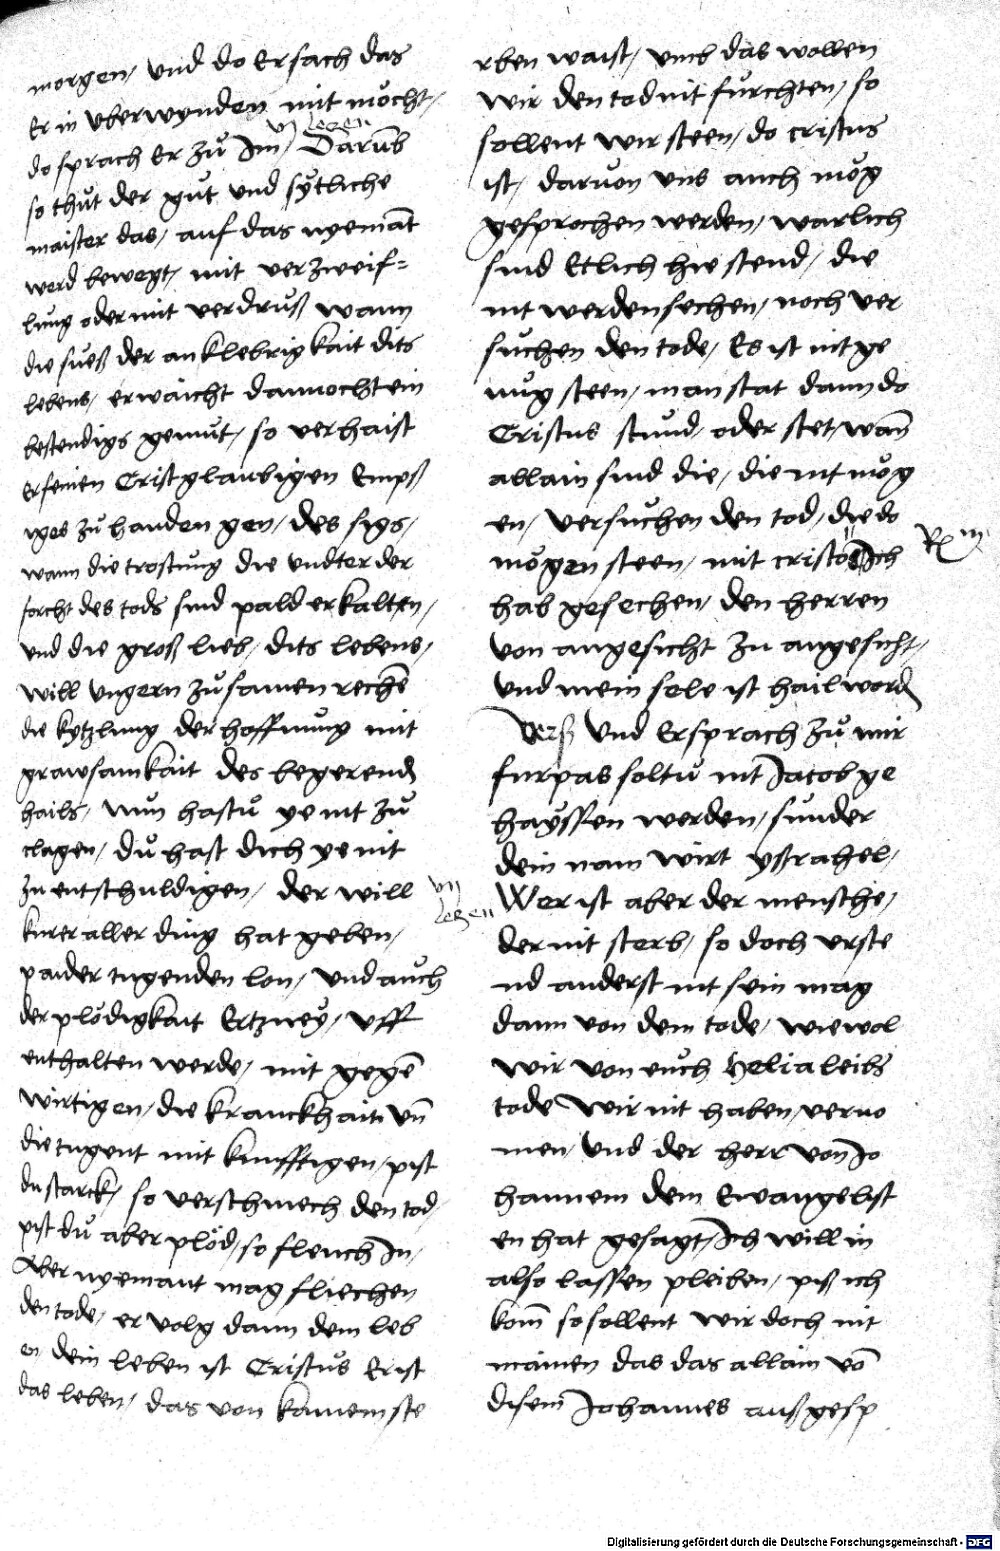 morgen / vnd do Er sach das
Er in vberwynden mit mocht /
vj legen
do sprach Er zů Im / Darůb
so thůt der gůt vnd sytliche
maister das / auf das nyemāt
werd bewegt / mit verzweif=
lung oder mit verdruß wann
die sueß der anklebrigkait dits
lebens / erwaicht dannocht ein
bestendigs gemůt / so verhaist
er seinen Cristglaubigen Emps
iges zů handen gen / des sigs /
wann die trostung die vndter der
forcht des tods sind pald erkalten /
vnd die groß lieb / dits lebens /
will vngern zůsamen rechē
die kytzlung der hoffnůng mit
grawsamkait des begerend
hails / nůn hastů ye nit zů
clagen / dů hast dich ye nit
zu entschuldigen / der will
vij legen
kurer aller ding hat geben /
paider tugenden lon / vnd aůch
der plödigkait Ertzney / vff
enthalten werde / mit gegē
wirtigen / die kranckhait vn̄
die tugent mit kunfftigen / pist
du starck / so verschmech den tod /
pist dů aber plöd / so fleuch In /
Aber nyemant mag fliechen
den tode / er volg dann dem leb
en dein leben ist Cristůs Er ist
das leben / das von kainem ste
rben waist / vmb das wollen
wir den tod nit fůrchten / so
sollent wir steen / do cristus
ist / daruon vns auch můg
gesprochen werden / warlich
sind Etlich hie stend / die
nit werden sechen / noch ver
sůchen den tode / Es ist nit ge
nůg steen / man stat dann do
Cristus stůnd / oder stet / wan̄
allain sind die / die nit můg
en / versůchen den tod / die do
mögen steen / mit cristo Ich
hab gesechen / den herren
von angesicht zu angesicht /
vnd mein sele ist hail word
Vers vnd Er sprach zů mir
furpas soltů nit Jacob ge
hayssen werden / sůnder
dein nam wirt ysrahel /
Wer ist aber der mensche /
der nit sterb / so doch vrste
nd anderst nit sein mag
dann von dem tode / wiewol
wir von euch helia leibs
tode wir nit haben / verno
men / vnd der herr von Jo
hannem dem Ewangelist
en hat gesagt / Ich will in
also lassen pleiben / piß ich
kom̄ so sollent wir doch nit
mainen das das allain vō
disem Johannes außgesp